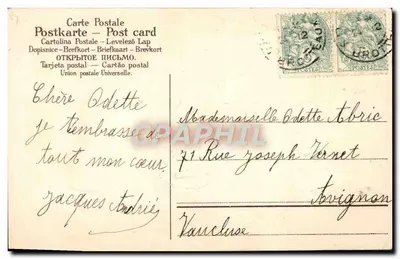 Carte Postale
Postkarte — Post card
Cartolina Postale — Levelező Lap
Dopisnice — Brefkort — Briefkaart — Brevkort
ОТКРЫТОЕ ПИСЬМО.
Tarjeta postal — Cartão postal
Union postale Universelle.
Chère Odette
je t'embrasse d
tout mon cœur.
Jacques André
Mademoiselle Odette Abric
71 Rue Joseph Vernet
Avignon
Vaucluse
CPAPHIL